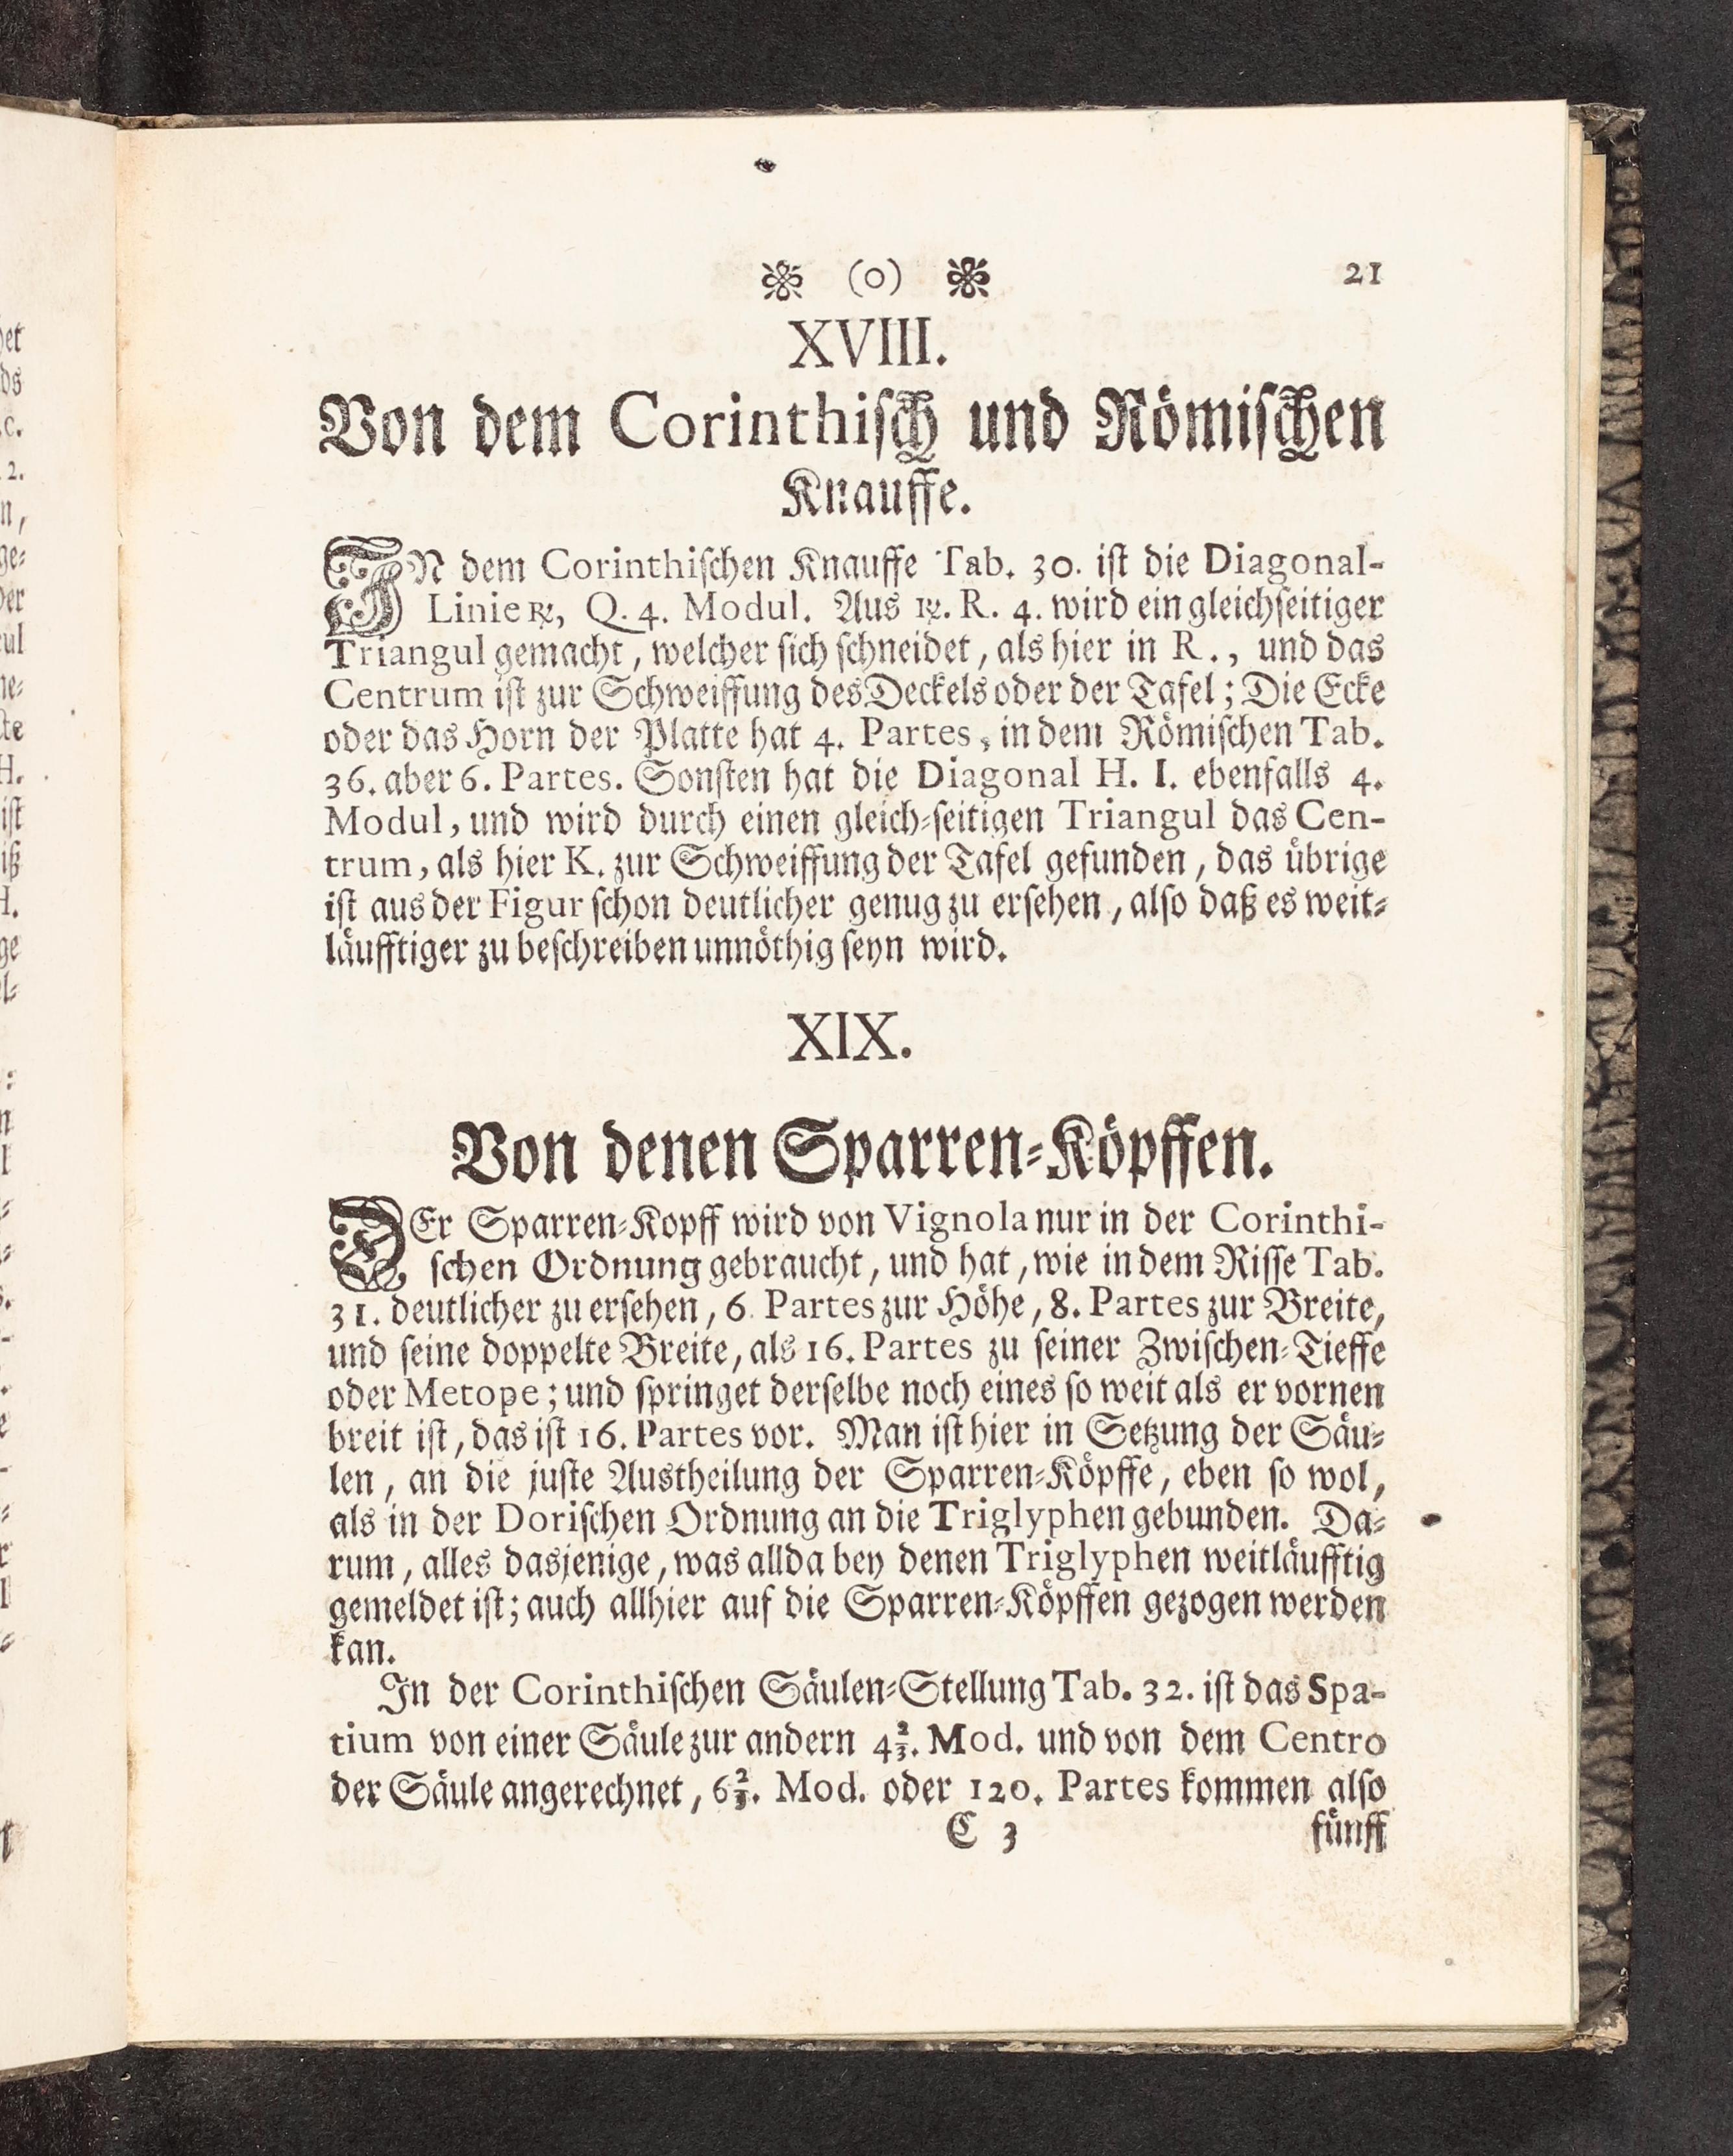 ❋ (o) ❋ 21
XVIII.
Von dem Corinthiſch und Römiſchen
Knauffe.
IN dem Corinthiſchen Knauffe Tab. 30. iſt die Diagonal-
Linie ꝶ, Q. 4. Modul. Aus ꝶ. R. 4. wird ein gleichſeitiger
Triangul gemacht, welcher ſich ſchneidet, als hier in R., und das
Centrum iſt zur Schweiffung des Deckels oder der Tafel; Die Ecke
oder das Horn der Platte hat 4. Partes, in dem Römiſchen Tab.
36. aber 6. Partes. Sonſten hat die Diagonal H. I. ebenfalls 4.
Modul, und wird durch einen gleich-ſeitigen Triangul das Cen-
trum, als hier K. zur Schweiffung der Tafel gefunden, das übrige
iſt aus der Figur ſchon deutlicher genug zu erſehen, alſo daß es weit-
läufftiger zu beſchreiben unnöthig ſeyn wird.
XIX.
Von denen Sparren-Köpffen.
DEr Sparren-Kopff wird von Vignola nur in der Corinthi-
ſchen Ordnung gebraucht, und hat, wie in dem Riſſe Tab.
31. deutlicher zu erſehen, 6. Partes zur Höhe, 8. Partes zur Breite,
und ſeine doppelte Breite, als 16. Partes zu ſeiner Zwiſchen-Tieffe
oder Metope; und ſpringet derſelbe noch eines ſo weit als er vornen
breit iſt, das iſt 16. Partes vor. Man iſt hier in Setzung der Säu-
len, an die juſte Austheilung der Sparren-Köpffe, eben ſo wol,
als in der Doriſchen Ordnung an die Triglyphen gebunden. Da-
rum, alles dasjenige, was allda bey denen Triglyphen weitläufftig
gemeldet iſt; auch allhier auf die Sparren-Köpffen gezogen werden
kan.
In der Corinthiſchen Säulen-Stellung Tab. 32. iſt das Spa-
tium von einer Säule zur andern 4⅔. Mod. und von dem Centro
der Säule angerechnet, 6⅔. Mod. oder 120. Partes kommen alſo
C 3 fünff